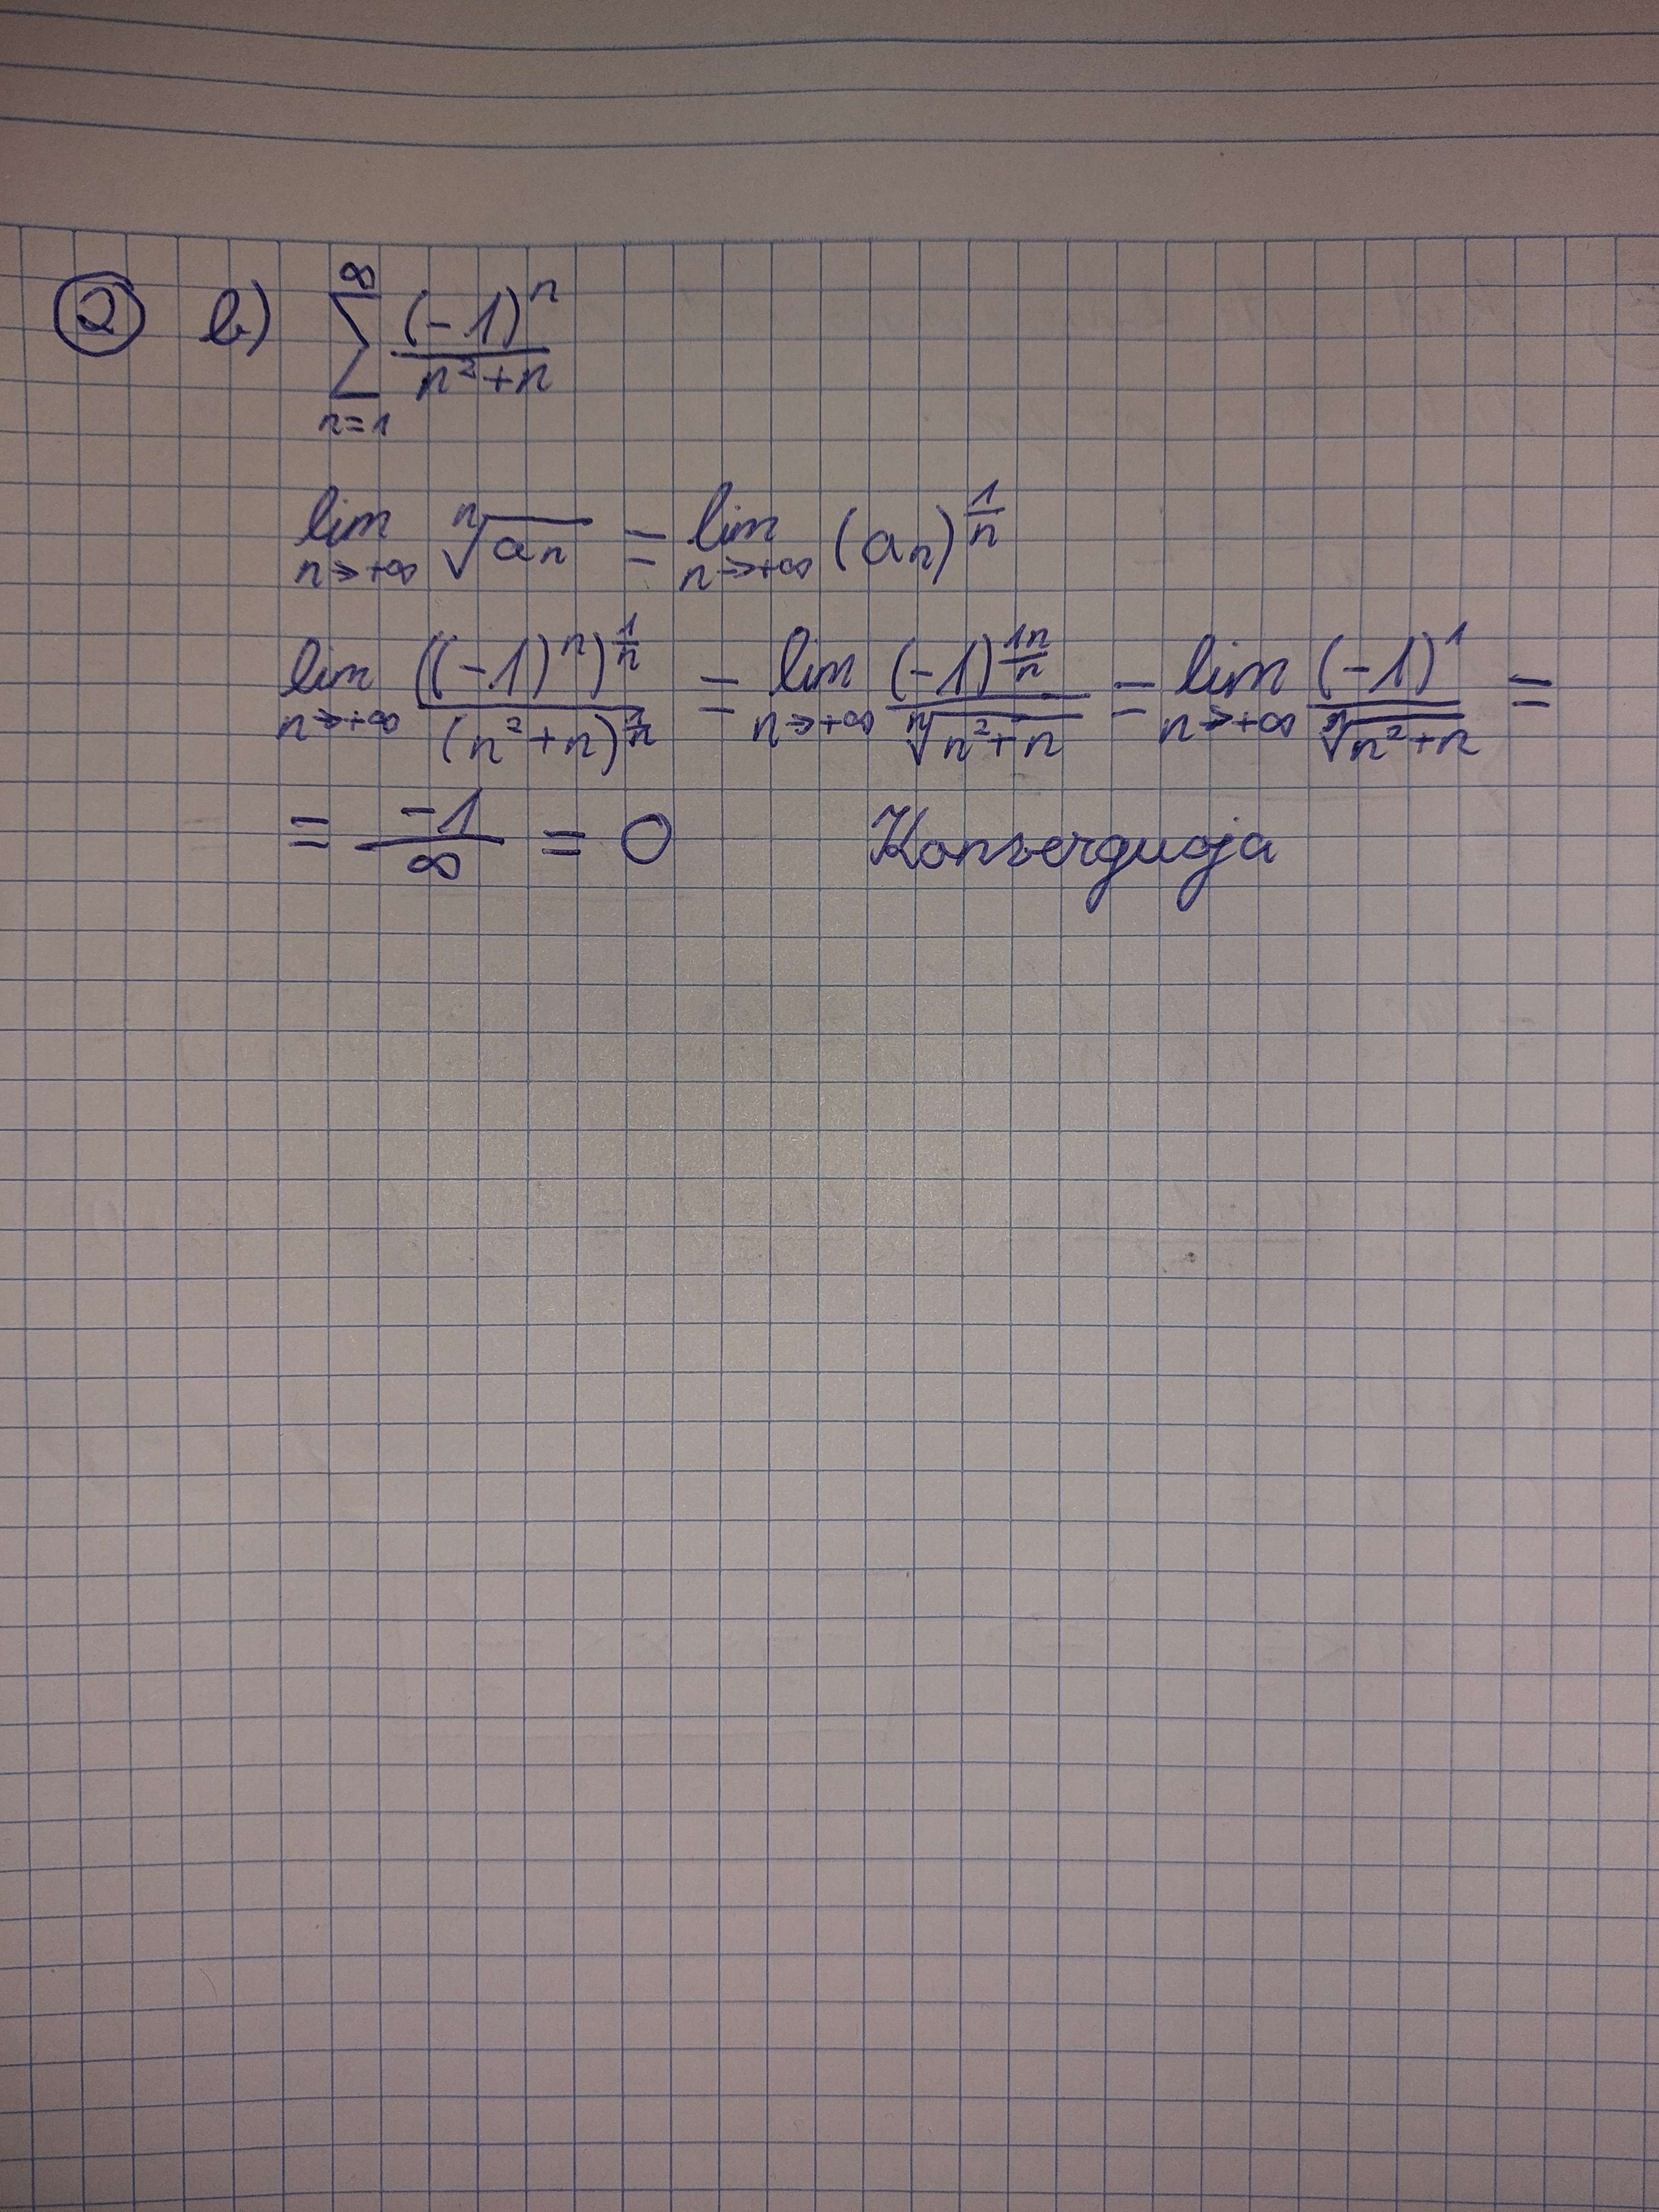 ② b) \sum_{n=1}^{\infty} \frac{(-1)^n}{n^2+n}
\lim_{n \to +\infty} \sqrt[n]{a_n} = \lim_{n \to +\infty} (a_n)^{\frac{1}{n}}
\lim_{n \to +\infty} \frac{((-1)^n)^{\frac{1}{n}}}{(n^2+n)^{\frac{1}{n}}} = \lim_{n \to +\infty} \frac{(-1)^{\frac{1n}{n}}}{\sqrt[n]{n^2+n}} = \lim_{n \to +\infty} \frac{(-1)^1}{\sqrt[n]{n^2+n}} =
= \frac{-1}{\infty} = 0 Konverguoja